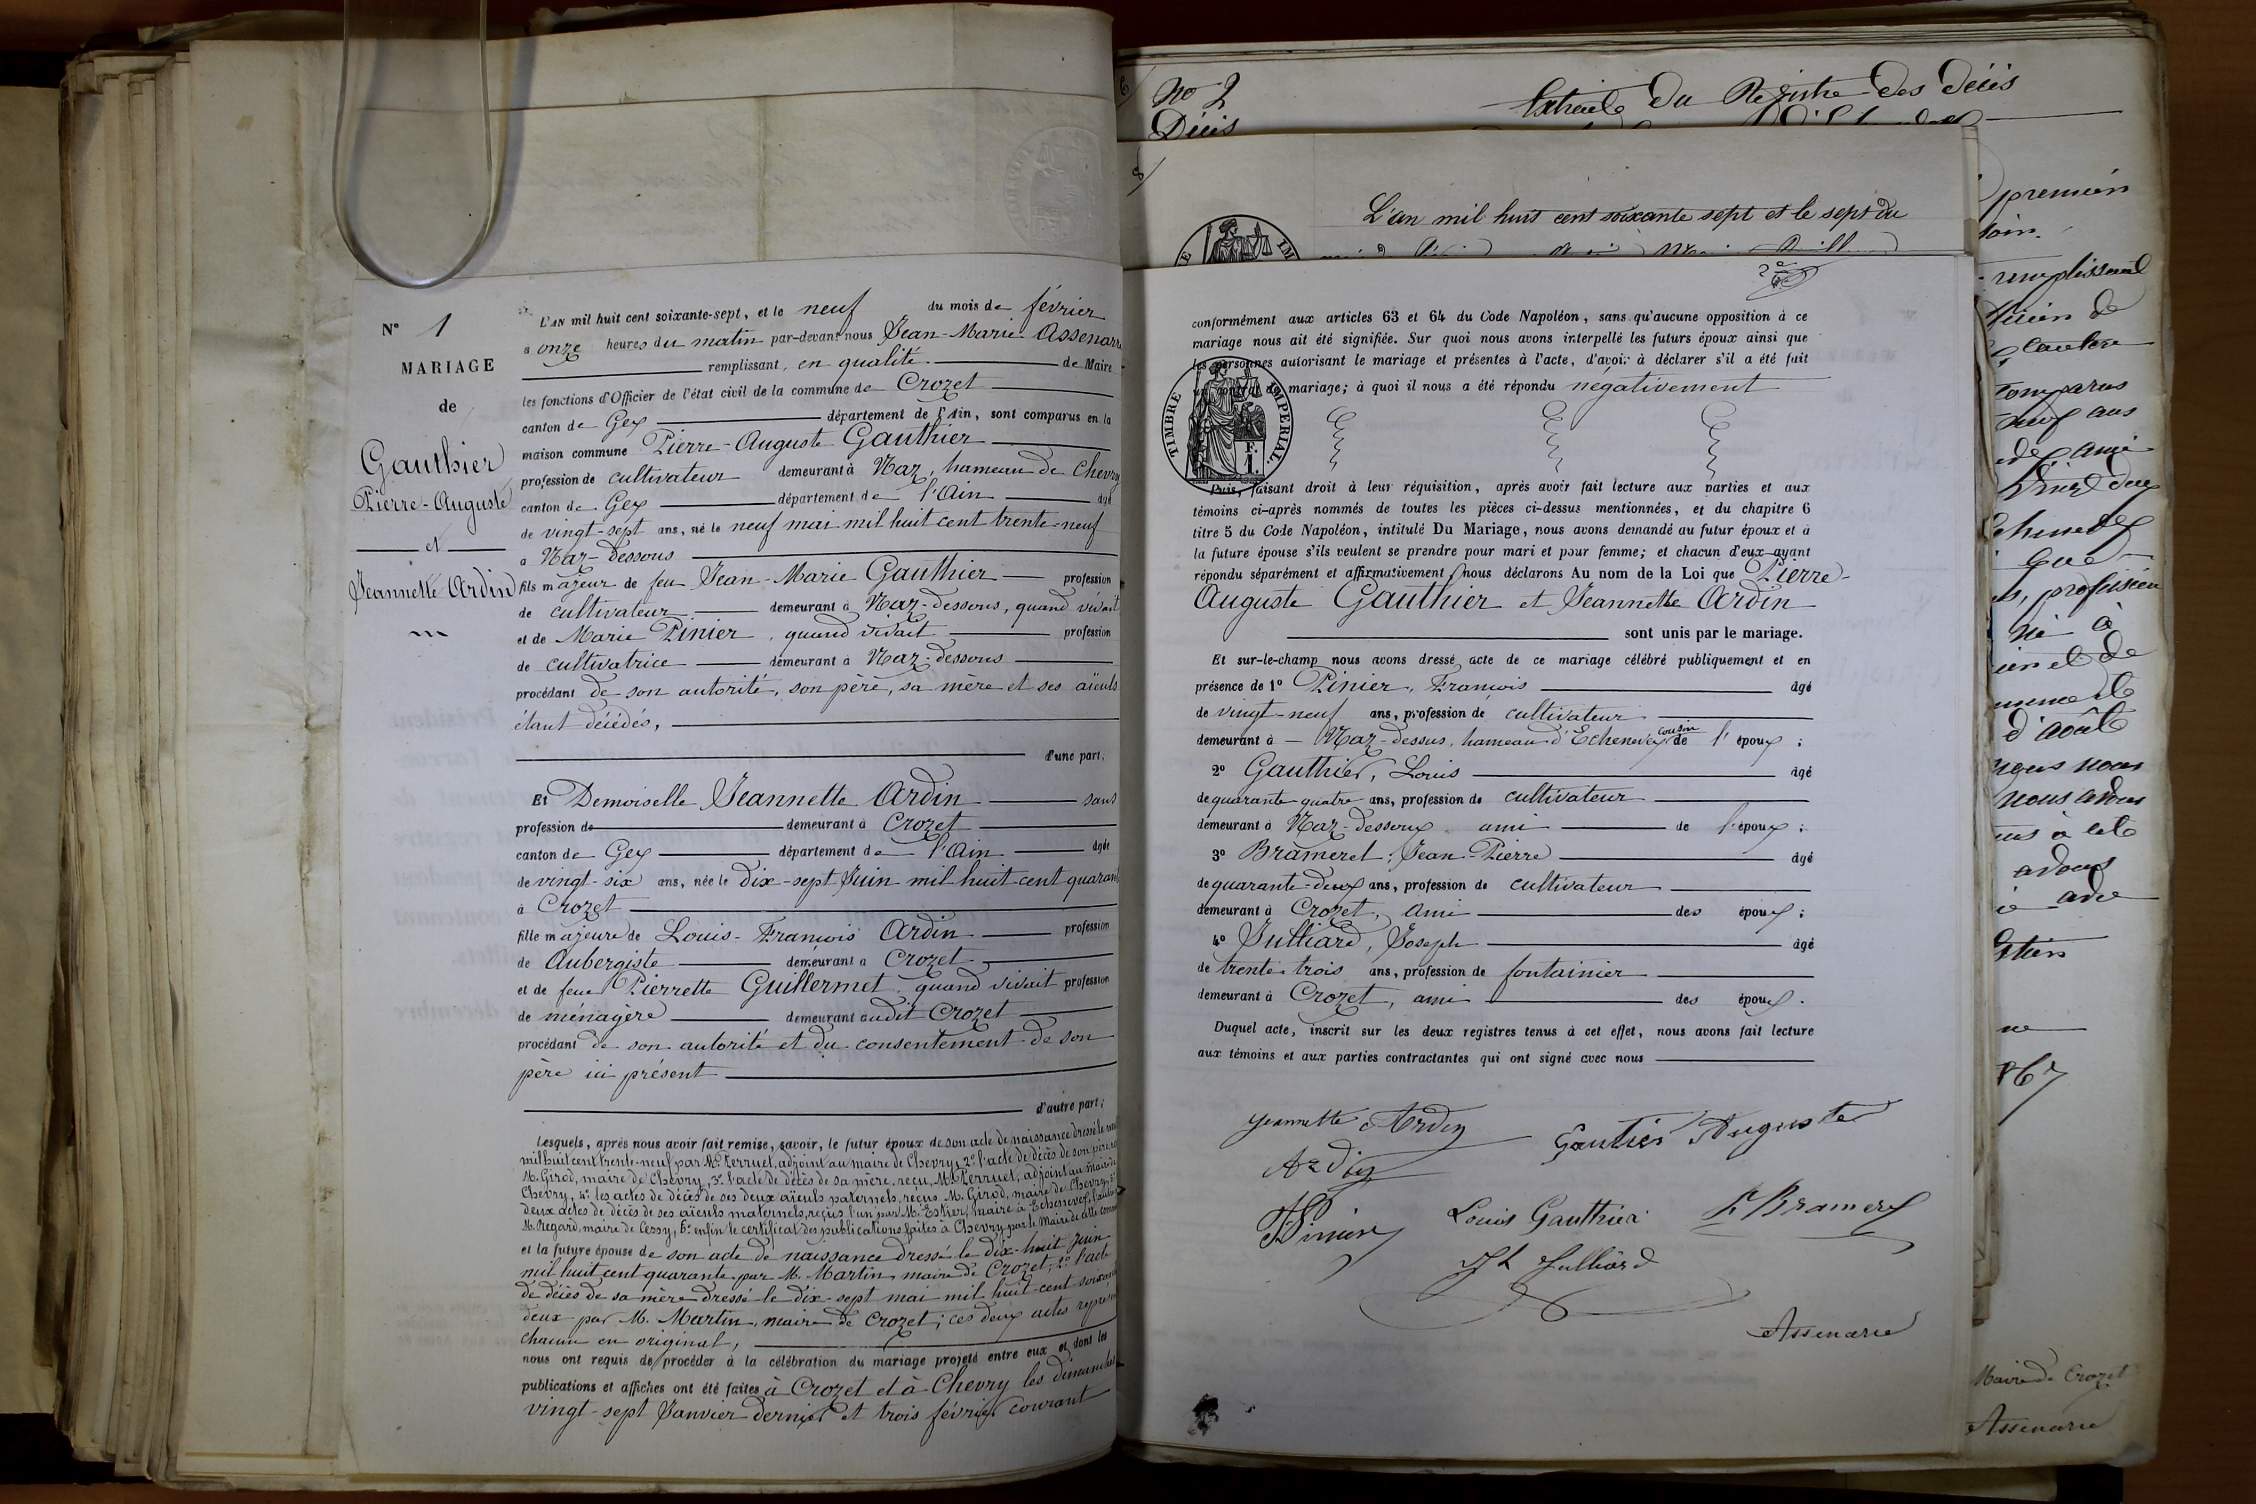 N° 1
MARIAGE
de
Gauthier
Pierre-Auguste
et
Jeannette Ardin
L'AN mil huit cent soixante-sept, et le neuf du mois de février
à onze heures du matin par-devant nous Jean-Marie Assenare
remplissant, en qualité de Maire
les fonctions d'Officier de l'état civil de la commune de Crozet
canton de Gex département de l'Ain, sont comparus en la
maison commune Pierre-Auguste Gauthier
profession de cultivateur demeurant à Naz, hameau de Chevry
canton de Gex département de l'Ain âgé
de vingt-sept ans, né le neuf mai mil huit cent trente-neuf
à Naz-Dessous
fils majeur de feu Jean-Marie Gauthier profession
de cultivateur demeurant à Naz-dessous, quand vivait
et de Marie Pinier, quand vivait profession
de cultivatrice demeurant à Naz-dessous
procédant de son autorité, son père, sa mère et ses aïeuls
étant décédés,
d'une part;
Et Demoiselle Jeannette Ardin sans
profession de demeurant à Crozet
canton de Gex département de l'Ain âgée
de vingt-six ans, née le dix-sept Juin mil huit cent quarante
à Crozet
fille majeure de Louis-François Ardin profession
de Aubergiste demeurant à Crozet
et de feue Pierrette Guillermet, quand vivait profession
de ménagère demeurant audit Crozet
procédant de son autorité et du consentement de son
père ici présent
d'autre part;
Lesquels, après nous avoir fait remise, savoir, le futur époux de son acte de naissance dressé le neuf
mil huit cent trente-neuf par M. Perruet, adjoint au maire de Chevry, 2° l'acte de décès de son père,
M. Girod, maire de Chevry, 3° l'acte de décès de sa mère, reçu M. Perruet, adjoint au maire de
Chevry, 4° les actes de décès de ses deux aïeuls paternels, reçus M. Girod, maire de Chevry, 5°
deux actes de décès de ses aïeuls maternels, reçus l'un par M. Estier, maire à Echenevex, l'autre
M. Regard, maire de Cessy, 6° enfin le certificat des publications faites à Chevry par le Maire de cette commune
et la future épouse de son acte de naissance dressé le dix-huit juin
mil huit cent quarante par M. Martin, maire de Crozet; 2° l'acte
de décès de sa mère dressé le dix-sept mai mil huit cent soixante
deux par M. Martin, maire de Crozet; ces deux actes
chacun en original,
nous ont requis de procéder à la célébration du mariage projeté entre eux et dont les
publications et affiches ont été faites à Crozet et à Chevry les dimanches
vingt-sept Janvier dernier et trois février courant
No 2
Décès
Extrait du Registre des Décès
8
L'an mil huit cent soixante sept et le sept du
TIMBRE IMPÉRIAL
F.
1.
conformément aux articles 63 et 64 du Code Napoléon, sans qu'aucune opposition à ce
mariage nous ait été signifiée. Sur quoi nous avons interpellé les futurs époux ainsi que
les personnes autorisant le mariage et présentes à l'acte, d'avoir à déclarer s'il a été fait
un contrat de mariage; à quoi il nous a été répondu négativement
Puis, faisant droit à leur réquisition, après avoir fait lecture aux parties et aux
témoins ci-après nommés de toutes les pièces ci-dessus mentionnées, et du chapitre 6
titre 5 du Code Napoléon, intitulé Du Mariage, nous avons demandé au futur époux et à
la future épouse s'ils veulent se prendre pour mari et pour femme; et chacun d'eux ayant
répondu séparément et affirmativement, nous déclarons Au nom de la Loi que Pierre-
Auguste Gauthier et Jeannette Ardin
sont unis par le mariage.
Et sur-le-champ nous avons dressé acte de ce mariage célébré publiquement et en
présence de 1° Pinier, François âgé
de vingt-neuf ans, profession de cultivateur
demeurant à Naz-dessus, hameau d'Echenevex cousin de l'époux;
2° Gauthier, Louis âgé
de quarante quatre ans, profession de cultivateur
demeurant à Naz-dessoux, ami de l'époux;
3° Brameret, Jean-Pierre âgé
de quarante-deux ans, profession de cultivateur
demeurant à Crozet, ami des époux;
4° Julliard, Joseph âgé
de trente-trois ans, profession de fontainier
demeurant à Crozet, ami des époux.
Duquel acte, inscrit sur les deux registres tenus à cet effet, nous avons fait lecture
aux témoins et aux parties contractantes qui ont signé avec nous
Jeannette Ardin
Gautier Auguste
Ardin
F Pinier
Louis Gauthier
P Bramerel
Jh Julliard
Assenare
premier
remplissant
comparus
neuf ans
Echenevex
que
profession
né à
d'août
nous
nous avons
avons
acte
867
Maire de Crozet
Assenare